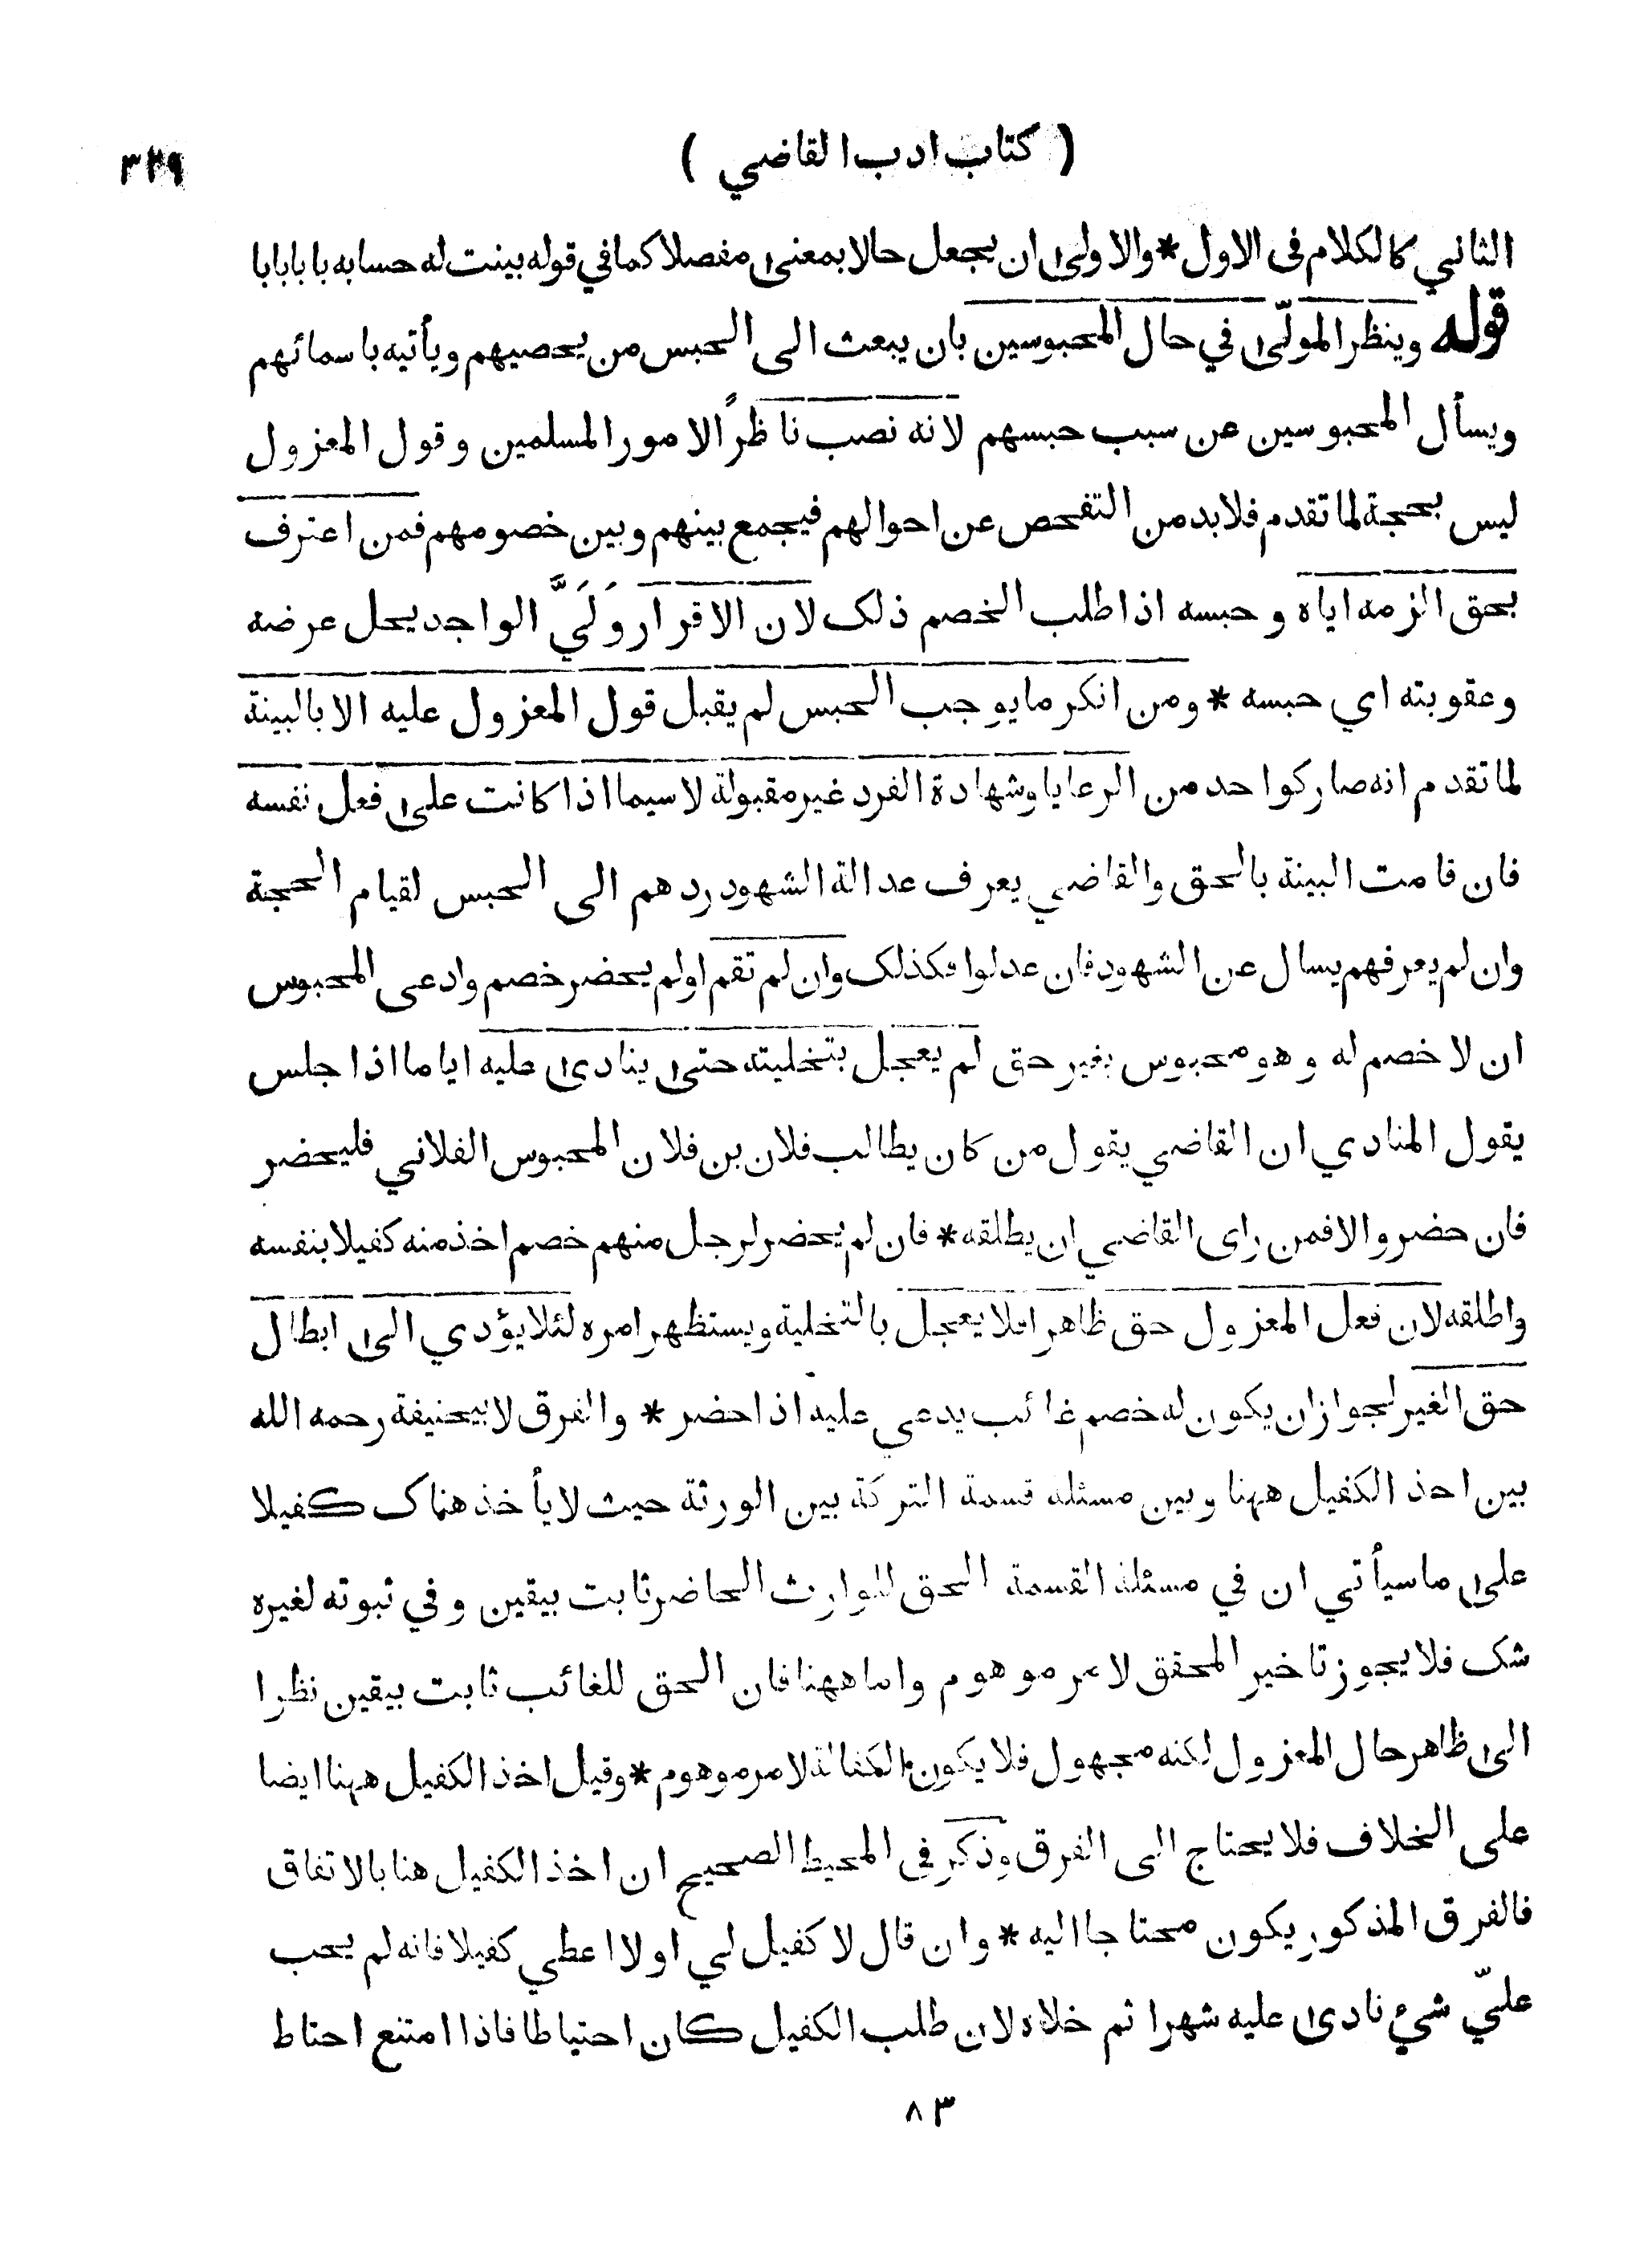 ( كتاب ادب القاضي )
٣٢٩
الثاني كالكلام فى الاول * والاولىٰ ان يجعل حالا بمعنىٰ مفصلا كما في قوله بينت له حسابه بابا بابا
قوله وينظر المولّىٰ في حال المحبوسين بان يبعث الى الحبس من يحصيهم ويأتيه باسمائهم
ويسأل المحبوسين عن سبب حبسهم لانه نصب ناظرًا لامور المسلمين وقول المعزول
ليس بحجة لما تقدم فلابد من التفحص عن احوالهم فيجمع بينهم وبين خصومهم فمن اعترف
بحق الزمه اياه وحبسه اذا طلب الخصم ذلك لان الاقرار وَلَيَّ الواجد يحل عرضه
وعقوبته اي حبسه * ومن انكر ما يوجب الحبس لم يقبل قول المعزول عليه الا بالبينة
لما تقدم انه صار كواحد من الرعايا وشهادة الفرد غير مقبولة لاسيما اذا كانت علىٰ فعل نفسه
فان قامت البينة بالحق والقاضي يعرف عدالة الشهود ردهم الى الحبس لقيام الحجة
وان لم يعرفهم يسال عن الشهود فان عدلوا فكذلك وان لم تقم اولم يحضر خصم وادعى المحبوس
ان لا خصم له وهو محبوس بغير حق لم يعجل بتخليته حتىٰ ينادىٰ عليه اياما اذا جلس
يقول المنادي ان القاضي يقول من كان يطالب فلان بن فلان المحبوس الفلاني فليحضر
فان حضر والا فمن راى القاضي ان يطلقه * فان لم يحضر لرجل منهم خصم اخذ منه كفيلا بنفسه
واطلقه لان فعل المعزول حق ظاهرا فلا يعجل بالتخلية ويستظهر امره لئلا يؤدي الىٰ ابطال
حق الغير لجواز ان يكون له خصم غائب يدعي عليه اذا حضر * والفرق لابيحنيفة رحمه الله
بين اخذ الكفيل ههنا وبين مسئلة قسمة التركة بين الورثة حيث لا يأخذ هناك كفيلا
علىٰ ما سيأتي ان في مسئلة القسمة الحق للوارث الحاضر ثابت بيقين وفي ثبوته لغيره
شك فلا يجوز تاخير المحقق لامر موهوم واما ههنا فان الحق للغائب ثابت بيقين نظرا
الىٰ ظاهر حال المعزول لكنه مجهول فلا يكون الكفالة لامر موهوم * وقيل اخذ الكفيل ههنا ايضا
على الخلاف فلا يحتاج الى الفرق وذكر فى المحيط الصحيح ان اخذ الكفيل هنا بالاتفاق
فالفرق المذكور يكون محتاجا اليه * وان قال لا كفيل لي اولا اعطي كفيلا فانه لم يجب
عليّ شيئ نادىٰ عليه شهرا ثم خلاه لان طلب الكفيل كان احتياطا فاذا امتنع احتاط
٨٣